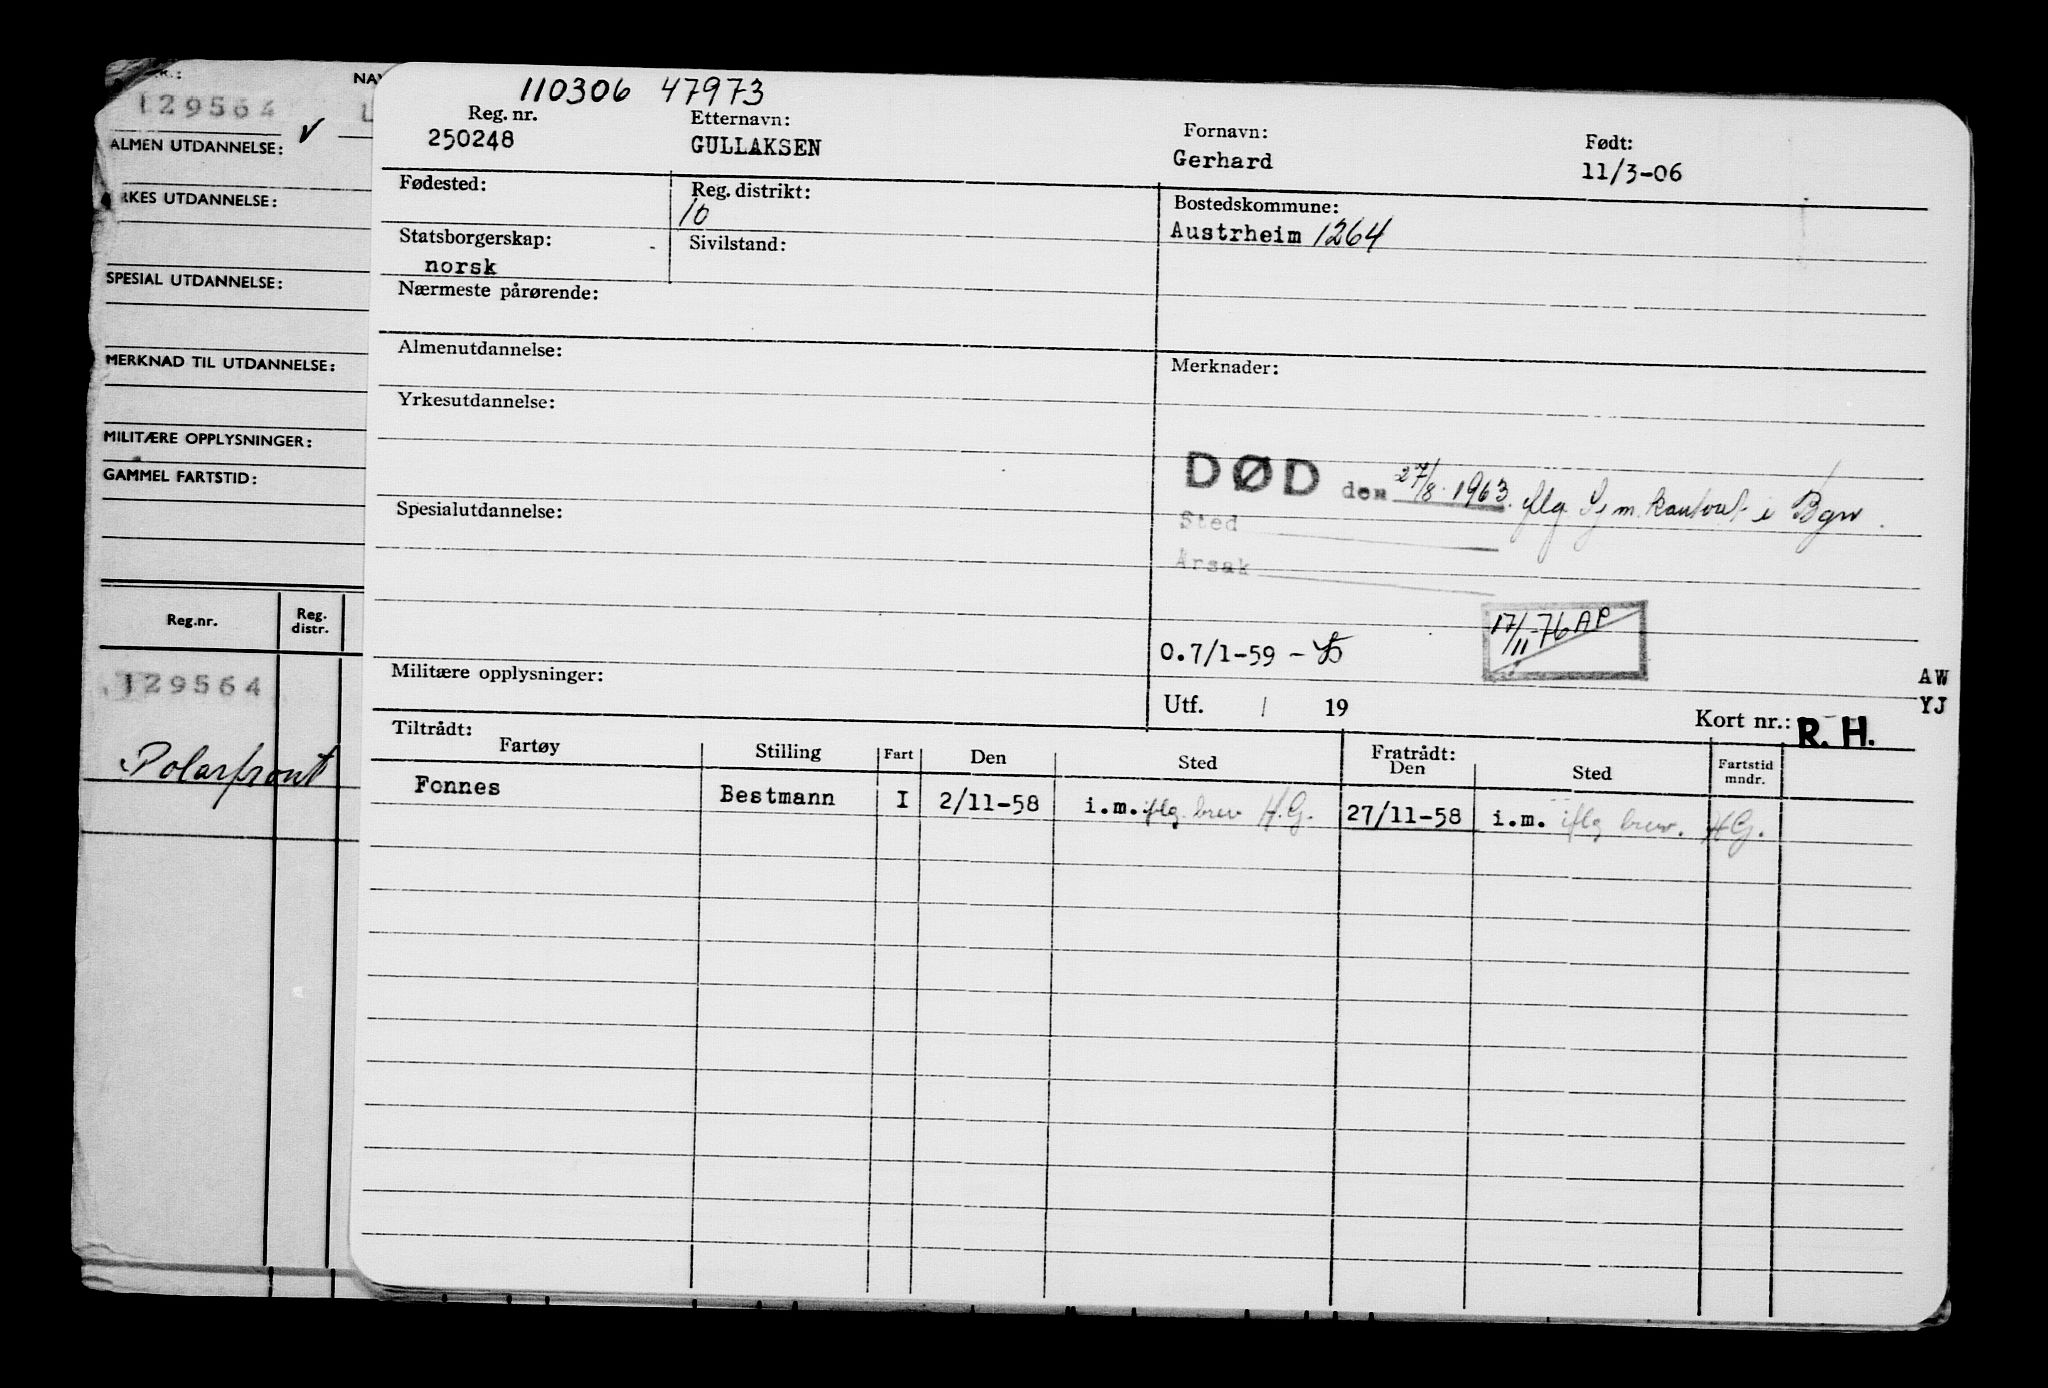 129564
ALMEN UTDANNELSE:
SPESIAL UTDANNELSE:
MERKNAD TIL UTDANNELSE:
MILITÆRE OPPLYSNINGER:
GAMMEL FARTSTID:
Reg.nr. Reg. distr.
129564
Polarfront
110306 47973
Reg. nr. Etternavn: Fornavn: Født:
250248 GULLAKSEN Gerhard 11/3-06
Fødested: Reg. distrikt: Bostedskommune:
10 Austrheim 1264
Statsborgerskap: Sivilstand:
norsk
Nærmeste pårørende:
Almenutdannelse: Merknader:
Yrkesutdannelse:
DØD den 27/8-1963 iflg. Sj m. kontoret i
Sted
Årsak
Spesialutdannelse:
17/11-76 AP
O.7/1-59 -
Militære opplysninger:
Utf. / 19
AW
YJ
Kort nr.: R. H.
Tiltrådt: Fratrådt:
Fartøy Stilling Fart Den Sted Den Sted Fartstid mndr.
Fonnes Bestmann I 2/11-58 i.m. iflg. brev H.G. 27/11-58 i.m. iflg brev. HG.